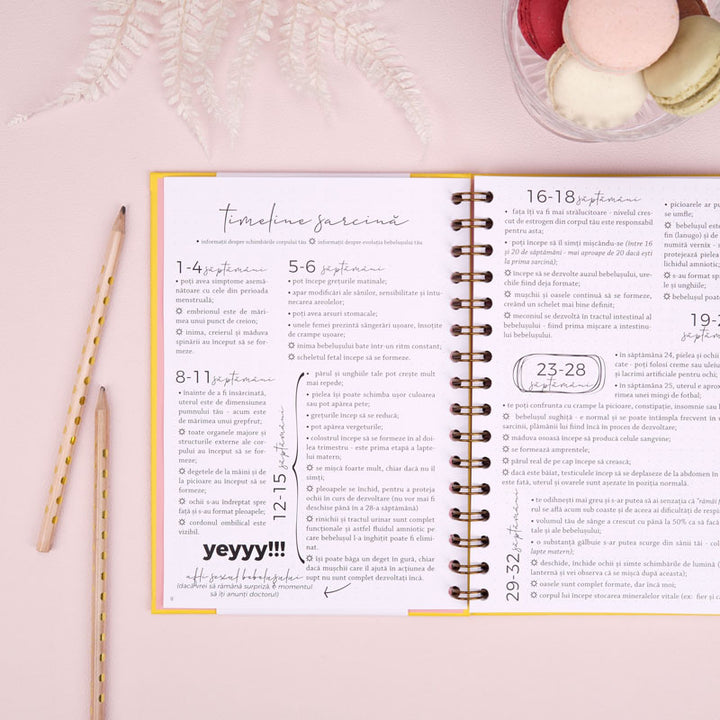 timeline sarcină
• informații despre schimbările corpului tău ۞ informații despre evoluția bebelușului tău
1-4 săptămâni
• poți avea simptome asemă-
nătoare cu cele din perioada
menstruală;
۞ embrionul este de mări-
mea unui punct de creion;
۞ inima, creierul și măduva
spinării au început să se for-
meze.
5-6 săptămâni
• pot începe grețurile matinale;
• apar modificări ale sânilor, sensibilitate și intu-
necarea areolelor;
• poți avea arsuri stomacale;
• unele femei prezintă sângerări ușoare, însoțite
de crampe ușoare;
۞ inima bebelușului bate într-un ritm constant;
۞ scheletul fetal începe să se formeze.
8-11 săptămâni
• înainte de a fi însărcinată,
uterul este de dimensiunea
pumnului tău - acum este
de mărimea unui grepfrut;
۞ toate organele majore și
structurile externe ale cor-
pului au început să se for-
meze;
۞ degetele de la mâini și de
la picioare au început să se
formeze;
۞ ochii s-au îndreptat spre
față și s-au format pleoapele;
۞ cordonul ombilical este
vizibil.
12-15 săptămâni
• părul și unghiile tale pot crește mult
mai repede;
• pielea își poate schimba ușor culoarea
sau pot apărea pete;
• grețurile încep să se reducă;
• pot apărea vergeturile;
• colostrul începe să se formeze în al doi-
lea trimestru - este prima etapă a lapte-
lui matern;
۞ se mișcă foarte mult, chiar dacă nu îl
simți;
۞ pleoapele se închid, pentru a proteja
ochii în curs de dezvoltare (nu vor mai fi
deschise până în a 28-a săptămână)
۞ rinichii și tractul urinar sunt complet
funcționale și astfel fluidul amniotic pe
care bebelușul l-a înghițit poate fi elimi-
nat.
۞ își poate băga un deget în gură, chiar
dacă mușchii care îl ajută în acțiunea de
supt nu sunt complet dezvoltați încă.
yeyyy!!!
afli sexul bebelușului
(dacă vrei să rămână surpriză, e momentul
să îți anunți doctorul)
16-18 săptămâni
• fața îți va fi mai strălucitoare - nivelul cres-
cut de estrogen din corpul tău este responsabil
pentru asta;
• poți începe să îl simți mișcându-se (între 16
și 20 de săptămâni - mai aproape de 20 dacă ești
la prima sarcină);
۞ începe să se dezvolte auzul bebelușului, ure-
chile fiind deja formate;
۞ mușchii și oasele continuă să se formeze,
creând un schelet mai bine definit;
۞ meconiul se dezvoltă în tractul intestinal al
bebelușului - fiind prima mișcare a intestinu-
lui bebelușului.
• picioarele ar pu
se umfle;
۞ bebelușul este
fin (lanugo) și de
numită vernix -
lichidul amniotic;
۞ s-au format sp
și unghiile;
۞ bebelușul poate
19-2
săptăm
23-28
săptămâni
• în săptămâna 24, pielea și ochii
cate - poți folosi creme sau uleiu
și lacrimi artificiale pentru ochi;
• în săptămâna 25, uterul e aprox
rimea unei mingi de fotbal;
• te poți confrunta cu crampe la picioare, constipație, insomnie sau
۞ bebelușul sughiță - e normal și se poate întâmpla frecvent în
sarcinii, plămânii lui fiind încă în proces de dezvoltare;
۞ măduva osoasă începe să producă celule sangvine;
۞ se formează amprentele;
۞ părul real de pe cap începe să crească;
۞ dacă este băiat, testiculele încep să se deplaseze de la abdomen în
este fată, uterul și ovarele sunt așezate în poziția normală.
29-32 săptămâni
• te odihnești mai greu și s-ar putea să ai senzația că "rămâi f
rul se află acum sub coaste și de aceea ai dificultăți de respir
• volumul tău de sânge a crescut cu până la 50% ca să facă
tale și ale bebelușului;
• o substanță gălbuie s-ar putea scurge din sânii tăi - colos
lapte matern);
۞ deschide, închide ochii și simte schimbările de lumină (
lanternă și vei observa că se mișcă după aceasta);
۞ oasele sunt complet formate, dar încă moi;
۞ corpul lui începe stocarea mineralelor vitale (ex: fier și c